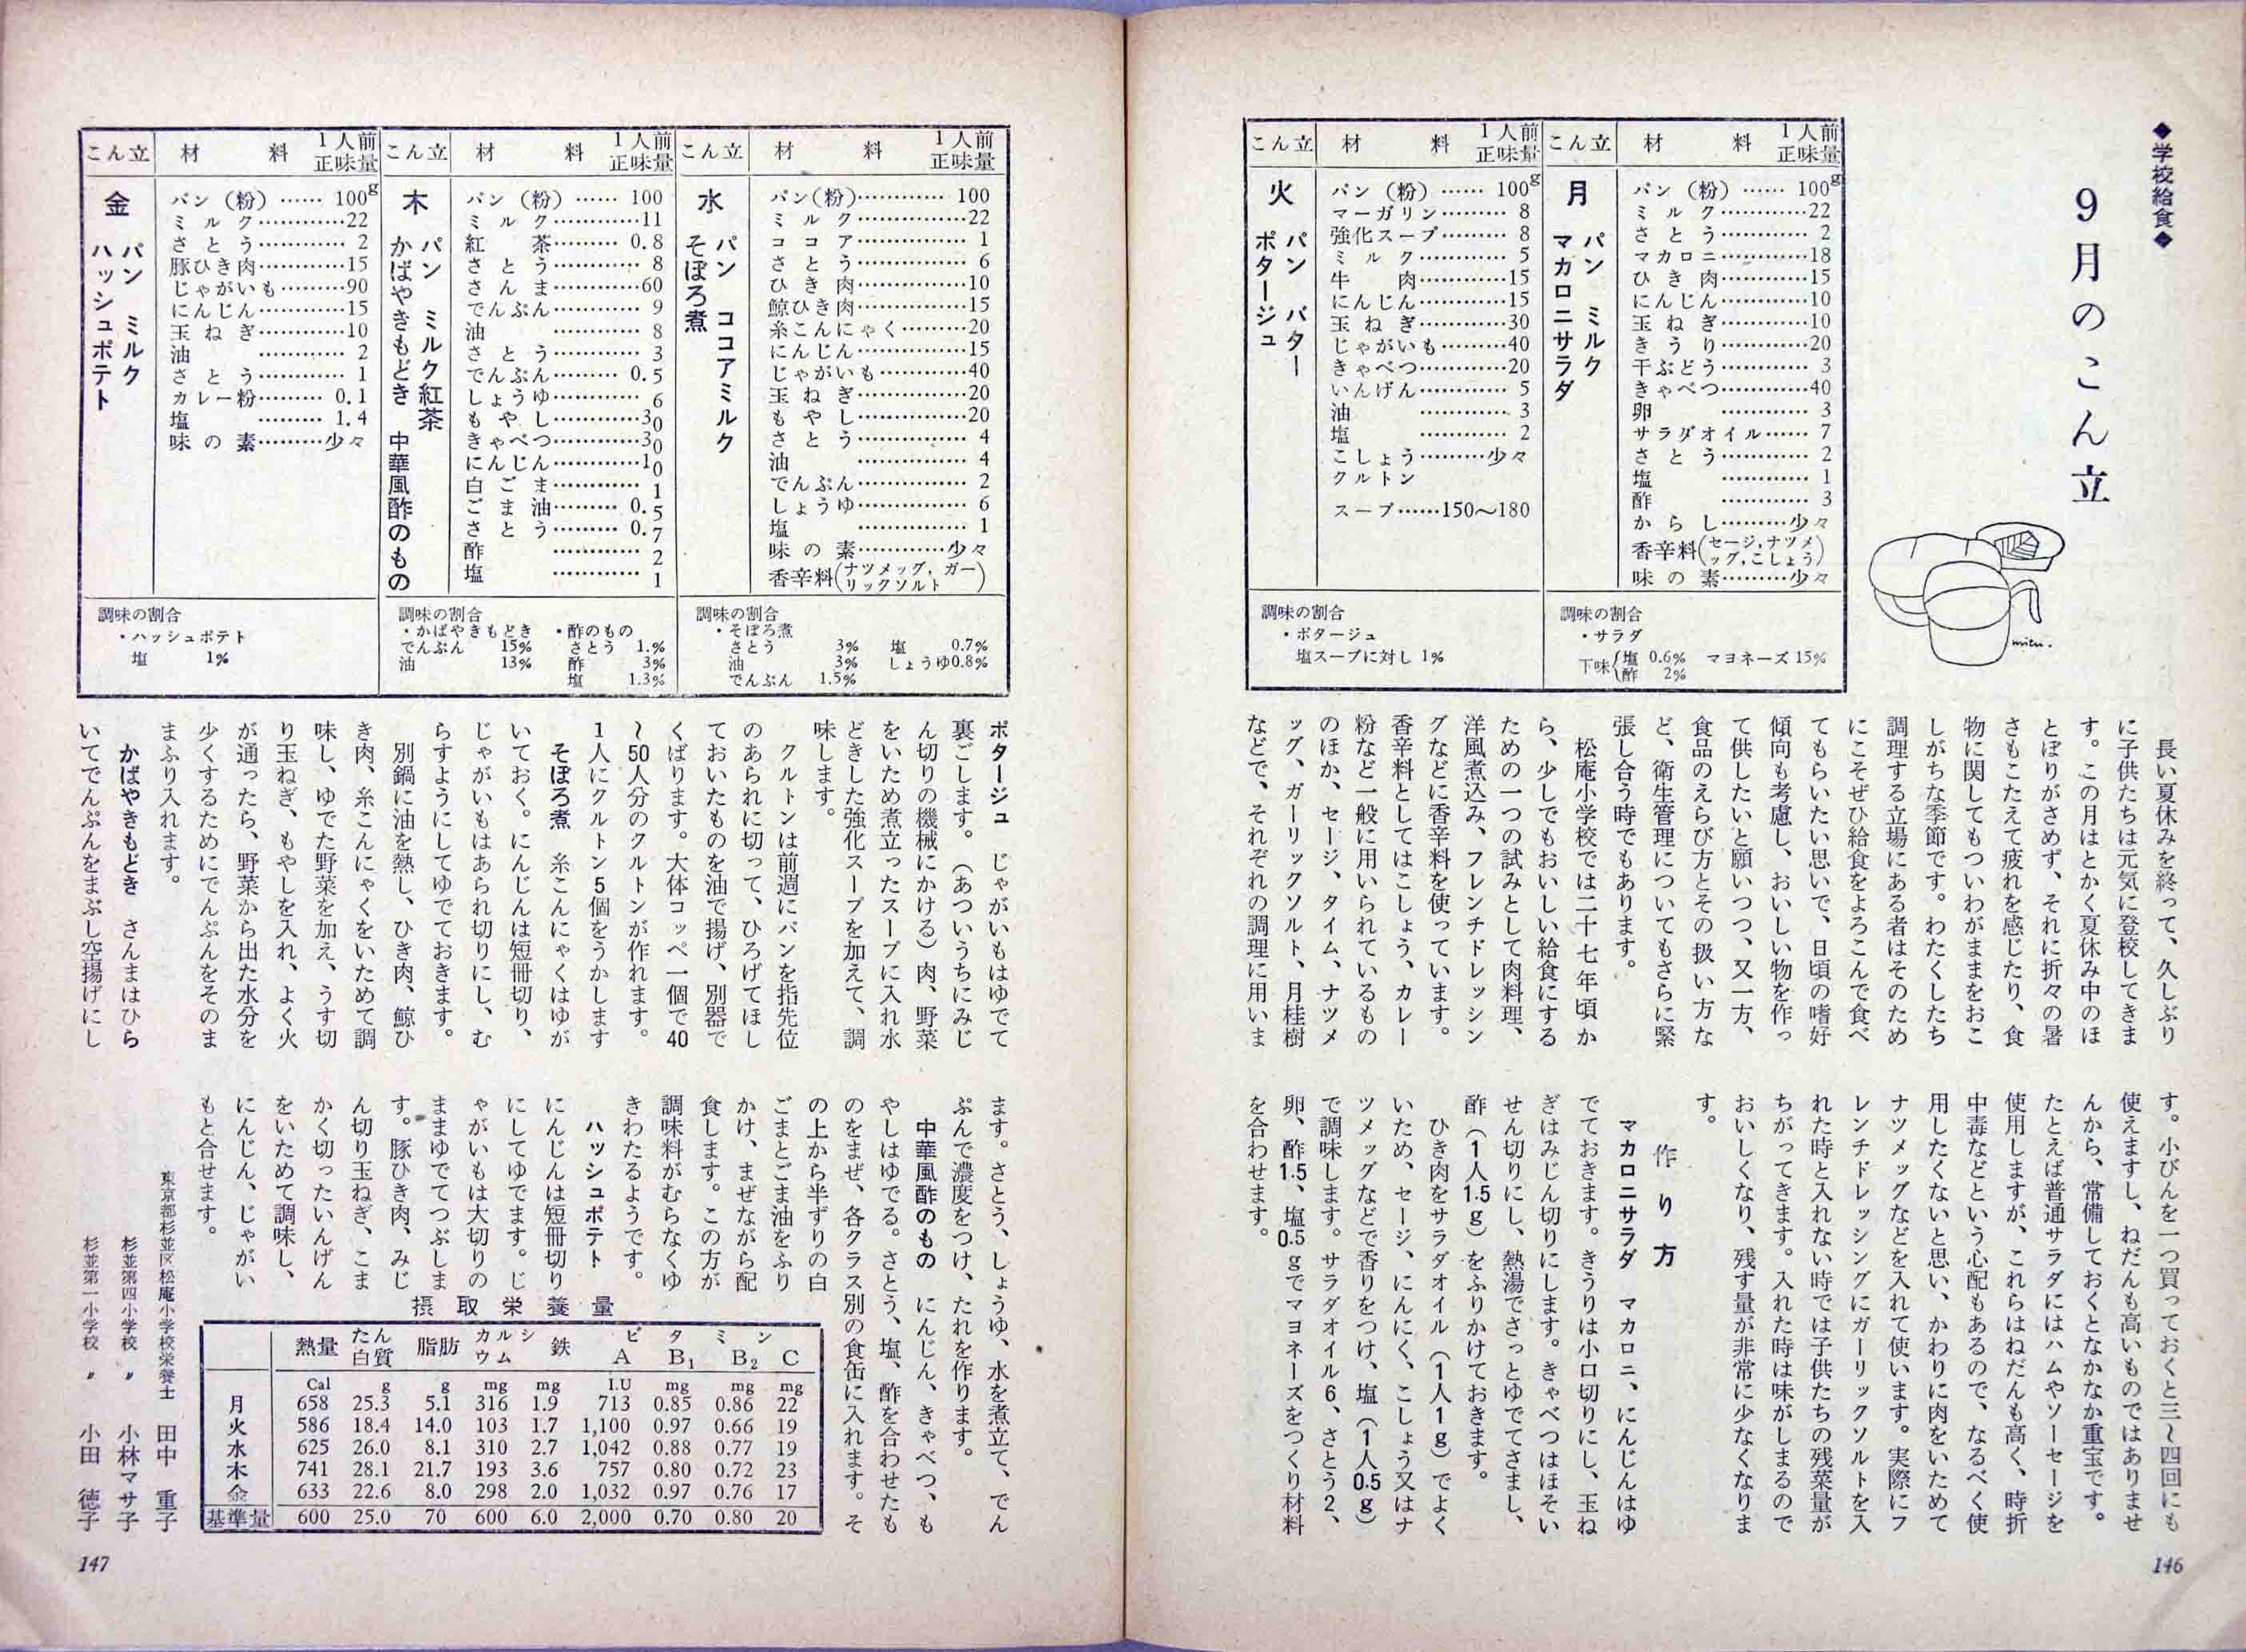 ◆学校給食◆
9月のこん立
こん立 材料 1人前正味量
月 パン ミルク
マカロニサラダ
パン（粉）…… 100g
ミルク…………22
さとう………… 2
マカロニ………18
ひき肉…………15
にんじん………10
玉ねぎ…………10
きうり…………20
干ぶどう……… 3
きゃべつ………40
卵 ………… 3
サラダオイル…… 7
さとう………… 2
塩 ………… 1
酢 ………… 3
からし………少々
香辛料（セージ,ナツメッグ,こしょう）
味の素………少々
調味の割合
・サラダ
下味｛塩 0.6% 酢 2% マヨネーズ 15%
こん立 材料 1人前正味量
火 パン バター
ポタージュ
パン（粉）…… 100g
マーガリン……… 8
強化スープ……… 8
ミルク………… 5
牛肉…………15
にんじん…………15
玉ねぎ…………30
じゃがいも………40
きゃべつ…………20
いんげん………… 5
油 ………… 3
塩 ………… 2
こしょう………少々
クルトン
スープ……150〜180
調味の割合
・ポタージュ
塩スープに対し 1%
mitu.
長い夏休みを終って、久しぶり
に子供たちは元気に登校してきま
す。この月はとかく夏休み中のほ
とぼりがさめず、それに折々の暑
さもこたえて疲れを感じたり、食
物に関してもついわがままをおこ
しがちな季節です。わたくしたち
調理する立場にある者はそのため
にこそぜひ給食をよろこんで食べ
てもらいたい思いで、日頃の嗜好
傾向も考慮し、おいしい物を作っ
て供したいと願いつつ、又一方、
食品のえらび方とその扱い方な
ど、衛生管理についてもさらに緊
張し合う時でもあります。
松庵小学校では二十七年頃か
ら、少しでもおいしい給食にする
ための一つの試みとして肉料理、
洋風煮込み、フレンチドレッシン
グなどに香辛料を使っています。
香辛料としてはこしょう、カレー
粉など一般に用いられているもの
のほか、セージ、タイム、ナツメ
ッグ、ガーリックソルト、月桂樹
などで、それぞれの調理に用いま
す。小びんを一つ買っておくと三〜四回にも
使えますし、ねだんも高いものではありませ
んから、常備しておくとなかなか重宝です。
たとえば普通サラダにはハムやソーセージを
使用しますが、これらはねだんも高く、時折
中毒などという心配もあるので、なるべく使
用したくないと思い、かわりに肉をいためて
ナツメッグなどを入れて使います。実際にフ
レンチドレッシングにガーリックソルトを入
れた時と入れない時では子供たちの残菜量が
ちがってきます。入れた時は味がしまるので
おいしくなり、残す量が非常に少なくなりま
す。
作り方
マカロニサラダ マカロニ、にんじんはゆ
でておきます。きうりは小口切りにし、玉ね
ぎはみじん切りにします。きゃべつはほそい
せん切りにし、熱湯でさっとゆでてさまし、
酢（1人1.5g）をふりかけておきます。
ひき肉をサラダオイル（1人1g）でよく
いため、セージ、にんにく、こしょう又はナ
ツメッグなどで香りをつけ、塩（1人0.5g）
で調味します。サラダオイル6、さとう2、
卵、酢1.5、塩0.5gでマヨネーズをつくり材料
を合わせます。
146
こん立 材料 1人前正味量
水 パン ココアミルク
そぼろ煮
パン（粉）………… 100
ミルク……………22
ココア…………… 1
さとう…………… 6
ひき肉……………10
鯨ひき肉…………15
糸こんにゃく………20
にんじん……………15
じゃがいも…………40
玉ねぎ……………20
もやし……………20
さとう…………… 4
油 …………… 4
でんぷん…………… 2
しょうゆ…………… 6
塩 …………… 1
味の素…………少々
香辛料（ナツメッグ, ガーリックソルト）
調味の割合
・そぼろ煮
さとう 3% 塩 0.7%
油 3% しょうゆ0.8%
でんぷん 1.5%
こん立 材料 1人前正味量
木 パン ミルク紅茶
かばやきもどき 中華風酢のもの
パン（粉）…… 100
ミルク…………11
紅茶……… 0.8
さとう………… 8
さんま…………60
でんぷん………… 9
油 ………… 8
さとう………… 3
でんぷん……… 0.5
しょうゆ………… 6
もやし…………30
きゃべつ…………30
にんじん…………10
白ごま………… 1
ごま油……… 0.5
さとう……… 0.7
酢 ………… 2
塩 ………… 1
調味の割合
・かばやきもどき ・酢のもの
でんぷん 15% さとう 1.%
油 13% 酢 3%
塩 1.3%
こん立 材料 1人前正味量
金 パン ミルク
ハッシュポテト
パン（粉）…… 100g
ミルク…………22
さとう………… 2
豚ひき肉…………15
じゃがいも………90
にんじん…………15
玉ねぎ…………10
油 ………… 2
さとう………… 1
カレー粉……… 0.1
塩 ……… 1.4
味の素………少々
調味の割合
・ハッシュポテト
塩 1%
ポタージュ じゃがいもはゆでて
裏ごします。（あついうちにみじ
ん切りの機械にかける）肉、野菜
をいため煮立ったスープに入れ水
どきした強化スープを加えて、調
味します。
クルトンは前週にパンを指先位
のあられに切って、ひろげてほし
ておいたものを油で揚げ、別器で
くばります。大体コッペ一個で40
〜50人分のクルトンが作れます。
1人にクルトン5個をうかします
そぼろ煮 糸こんにゃくはゆが
いておく。にんじんは短冊切り、
じゃがいもはあられ切りにし、む
らすようにしてゆでておきます。
別鍋に油を熱し、ひき肉、鯨ひ
き肉、糸こんにゃくをいためて調
味し、ゆでた野菜を加え、うす切
り玉ねぎ、もやしを入れ、よく火
が通ったら、野菜から出た水分を
少くするためにでんぷんをそのま
まふり入れます。
かばやきもどき さんまはひら
いてでんぷんをまぶし空揚げにし
ます。さとう、しょうゆ、水を煮立て、でん
ぷんで濃度をつけ、たれを作ります。
中華風酢のもの にんじん、きゃべつ、も
やしはゆでる。さとう、塩、酢を合わせたも
のをまぜ、各クラス別の食缶に入れます。そ
の上から半ずりの白
ごまとごま油をふり
かけ、まぜながら配
食します。この方が
調味料がむらなくゆ
きわたるようです。
ハッシュポテト
にんじんは短冊切り
にしてゆでます。じ
ゃがいもは大切りの
ままゆでてつぶしま
す。豚ひき肉、みじ
ん切り玉ねぎ、こま
かく切ったいんげん
をいためて調味し、
にんじん、じゃがい
もと合せます。
摂取栄養量
熱量 たん白質 脂肪 カルシウム 鉄 ビタミン A B1 B2 C
Cal g g mg mg I.U mg mg mg
月 658 25.3 5.1 316 1.9 713 0.85 0.86 22
火 586 18.4 14.0 103 1.7 1,100 0.97 0.66 19
水 625 26.0 8.1 310 2.7 1,042 0.88 0.77 19
木 741 28.1 21.7 193 3.6 757 0.80 0.72 23
金 633 22.6 8.0 298 2.0 1,032 0.97 0.76 17
基準量 600 25.0 70 600 6.0 2,000 0.70 0.80 20
東京都杉並区松庵小学校栄養士 田中 重子
杉並第四小学校 〃 小林マサ子
杉並第一小学校 〃 小田 徳子
147